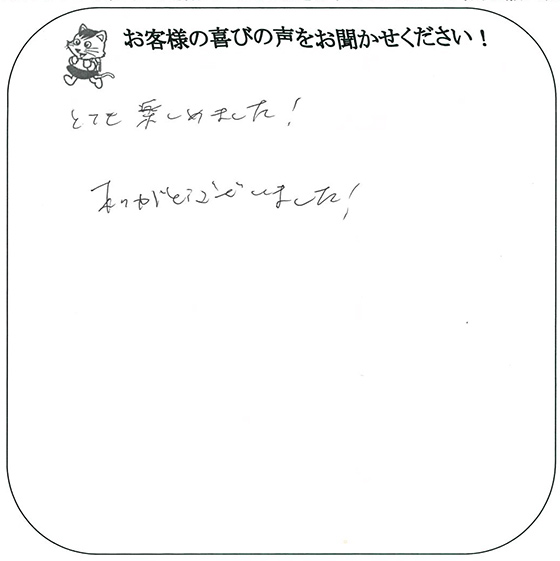 お客様の喜びの声をお聞かせください！
とても楽しめました！
ありがとうございました！